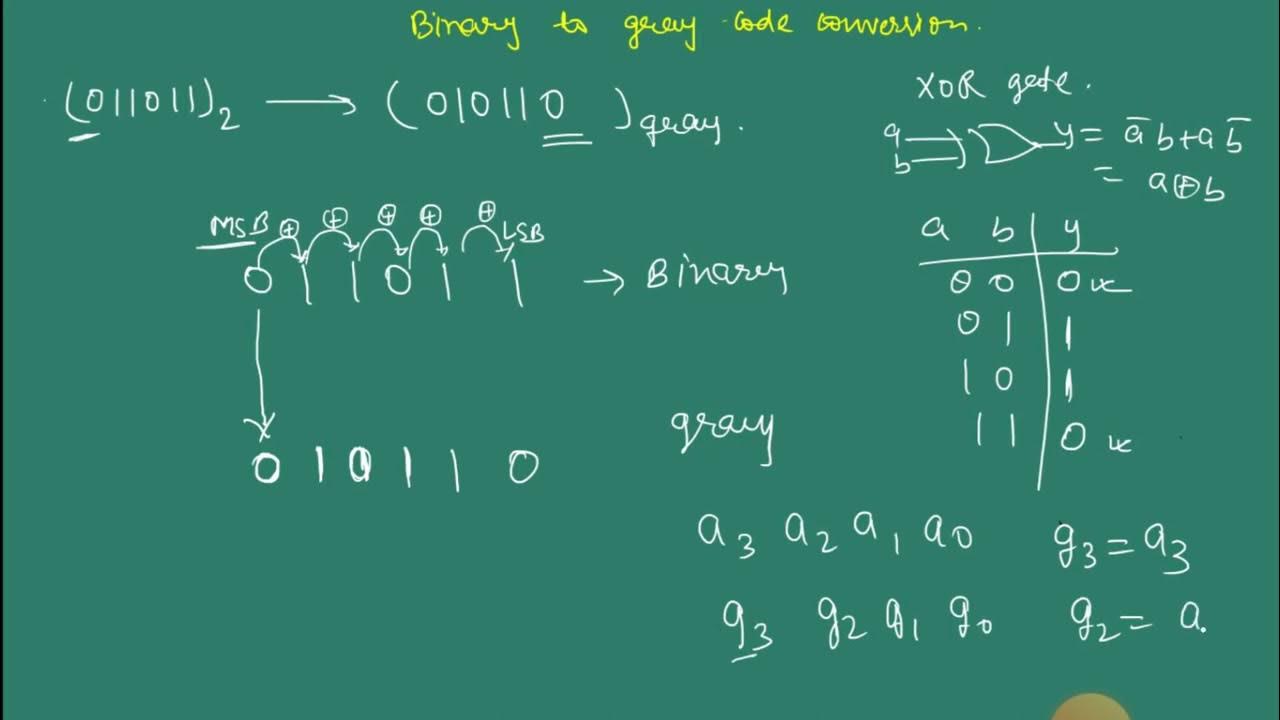 Binary to gray code conversion.
(011011)₂ ⟶ (010110)gray.
XOR gate.
a
b
y = a̅b+ab̅
= a⊕b
MSB ⊕ ⊕ ⊕ ⊕ ⊕ LSB
0 1 1 0 1 1 → Binary
a b y
0 0 0
0 1 1
1 0 1
1 1 0
gray
0 1 0 1 1 0
a₃ a₂ a₁ a₀ g₃ = a₃
g₃ g₂ g₁ g₀ g₂ = a